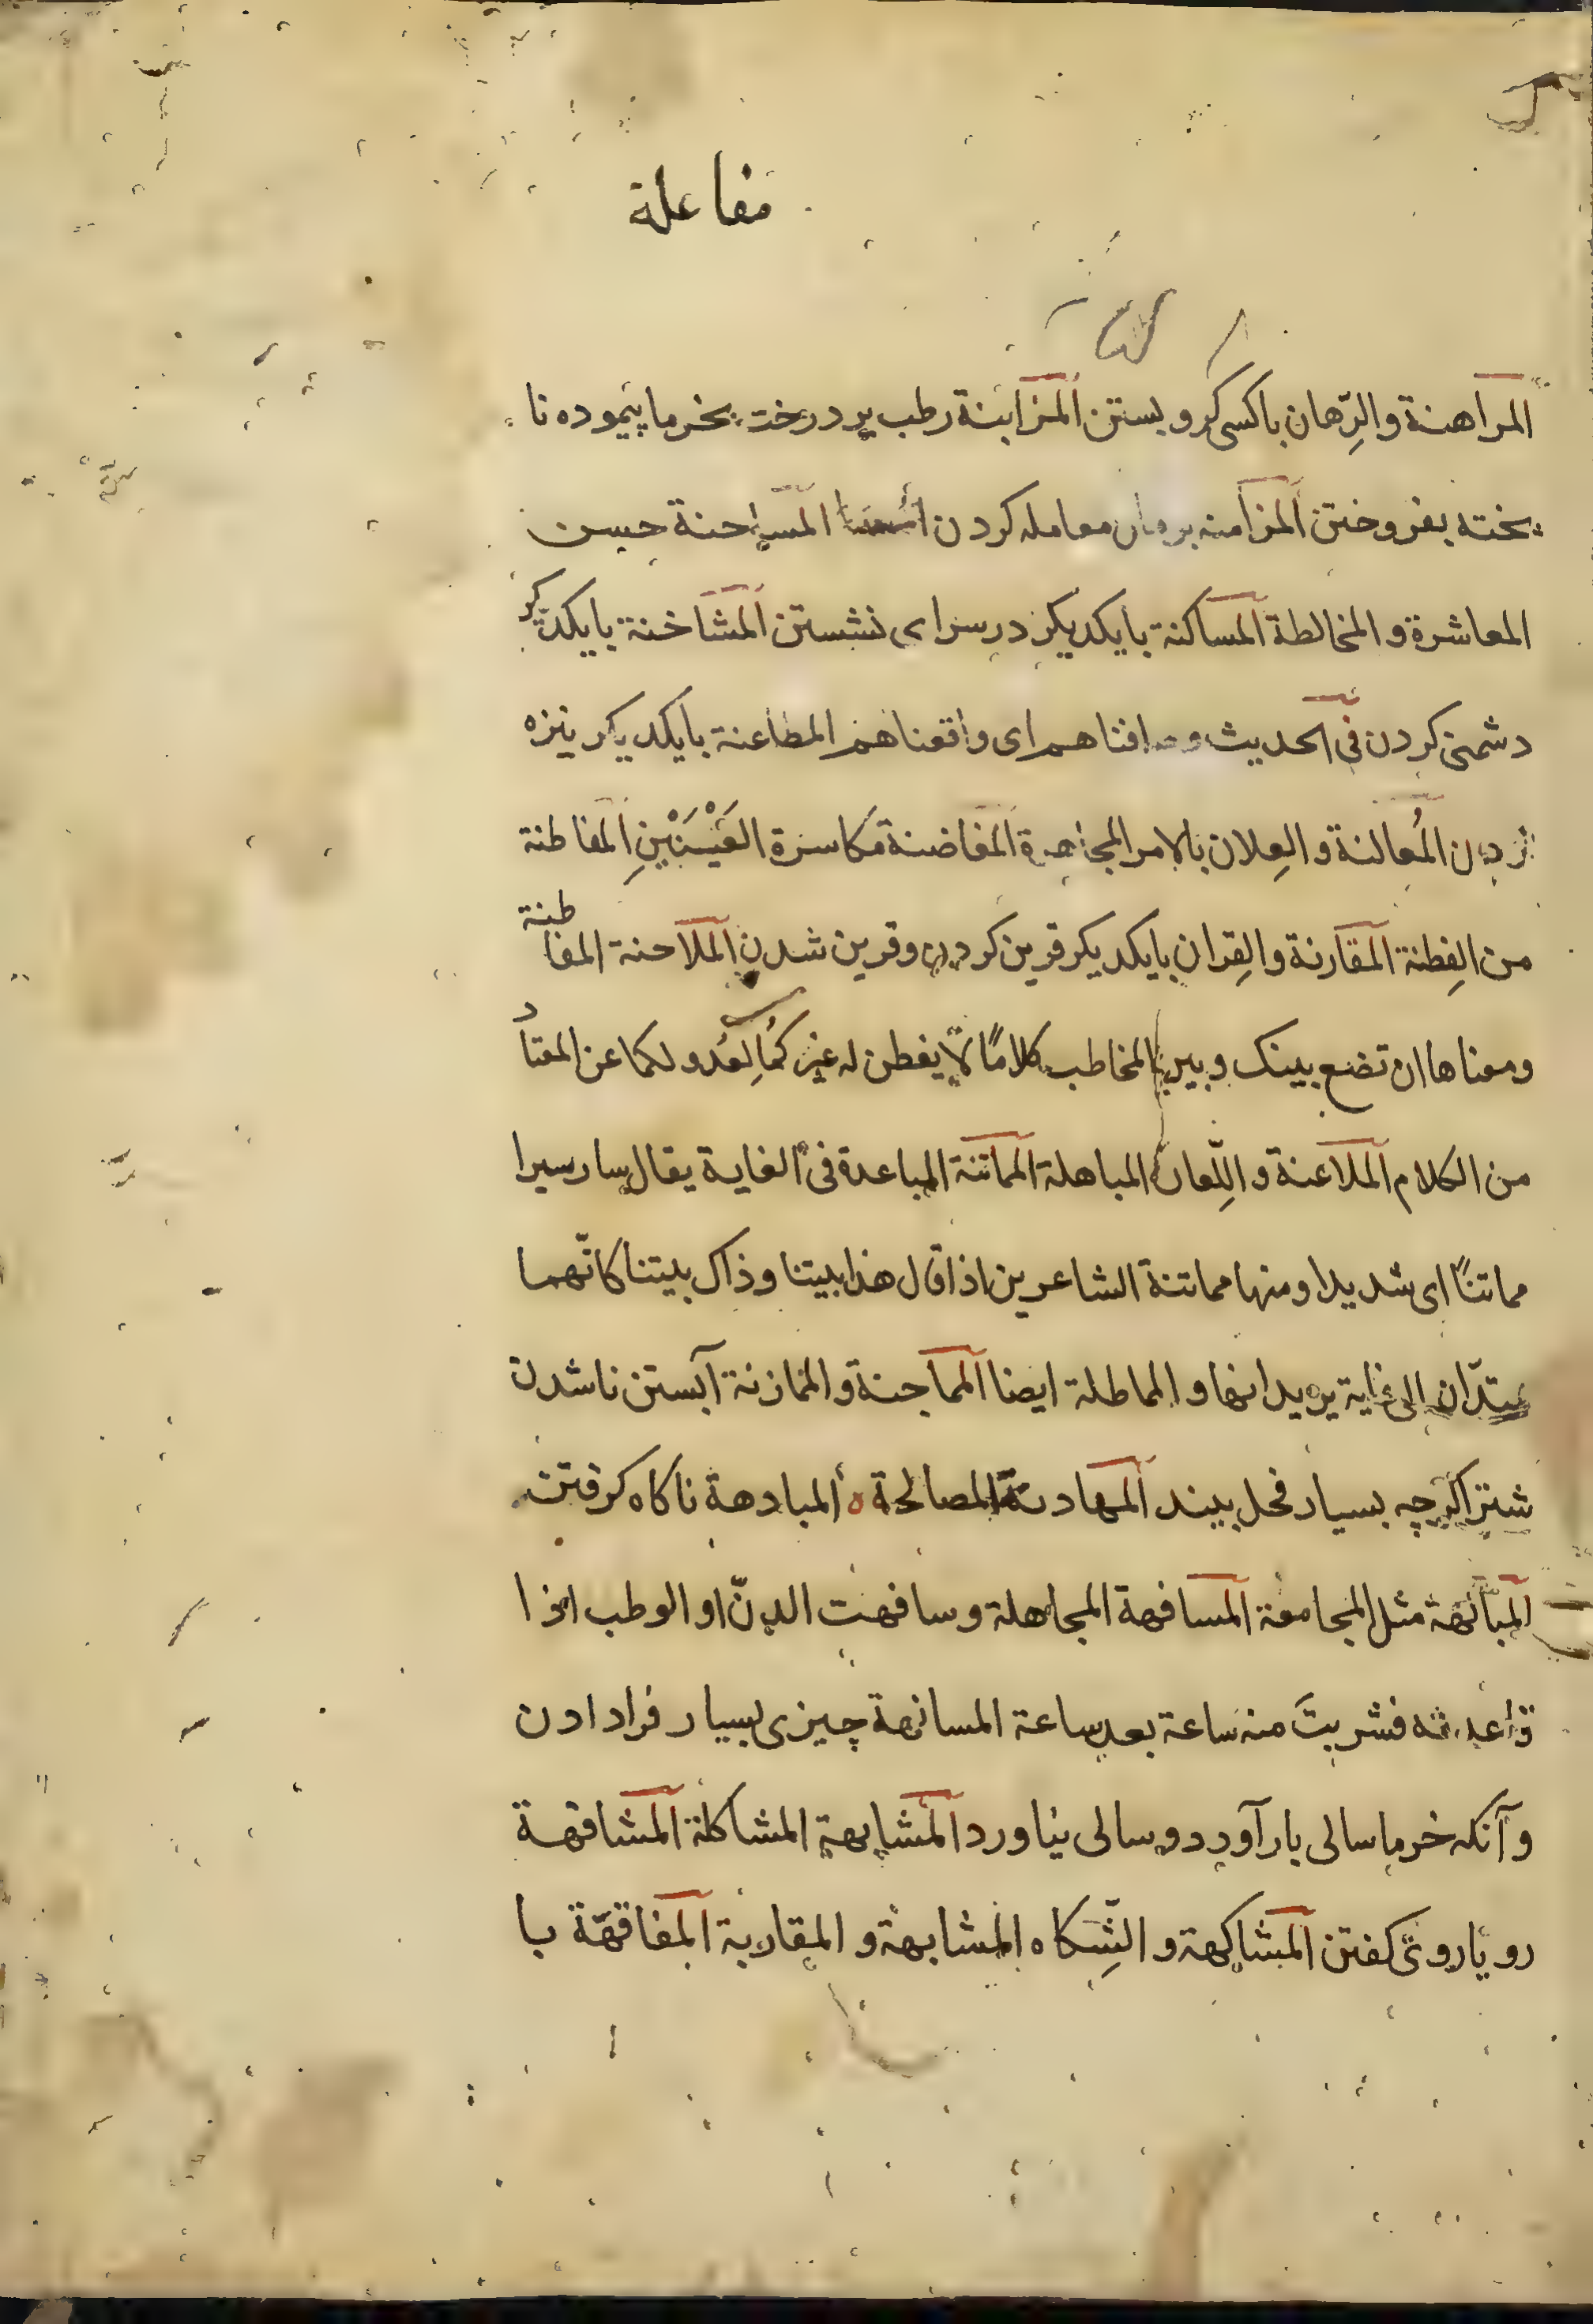 مفاعلة
المراهنة والرِّهان باكسى كرو بستن المزابنة رطب بر درخت بخرما پيموده نا
بخته بفروختن المزامنه بزمان معامله كردن المساحنة حسن
المعاشرة و المخالطة المساكنة بايكديكر در سراى نشستن المشاخنة بايكديكر
دشمنى كردن فى الحديث و صافناهم اى واقعناهم المطاعنة بايكديكر نيزه
زدن المُعالنة و العِلان بالامر المجاهرة المغاضنة مكاسرة العَيْنَيْنِ المفاطنة
من الفِطنة المقارنة والقِران بايكديكر قرين كردن و قرين شدن الملاحنة المفاطنة
ومعناها ان تضع بينك و بين المخاطب كلامًا لا يفطن له غيركما لعُدولكما عن المعتاد
من الكلام الملاعنة و اللِّعان المباهلة المماتنة المباعدة فى الغاية يقال سار سيرا
مماتنًا اى شديدا ومنها مماتنة الشاعرين اذا قال هذا بيتنا وذاك بيتنا كانّهما
يمتدّان الى غاية يريدانها و المماطلة ايضا المماجنة و المخازنة آبستن ناشدن
شتر اكرچه بسيار فحل بيند المهادنة المصالحة ه المبادهة ناكاه كرفتن
المباٮهة مثل المجامعة المسافهة المجاهلة و سافهت الدنّ او الوطب اذا
قاعدته فشربتَ منه ساعة بعد ساعة المسانهة چيزى بسيار فرا دادن
و آنكه خرما سالى بار آورد و سالى نياورد المشابهة المشاكلة المشافهة
رو ياروى كفتن المشاكهة و الشِّكاه المشابهة و المقاربة المفاقهة با